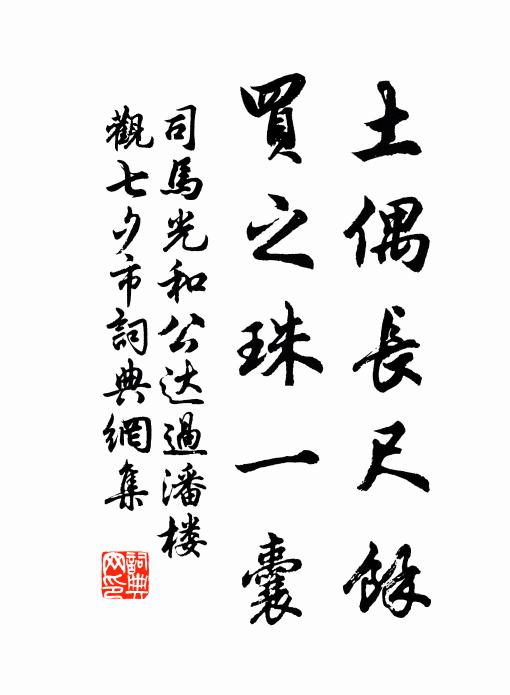 土偶長尺餘
買之珠一囊
司馬光和公达過潘楼
觀七夕市詞典網集
詞典网印